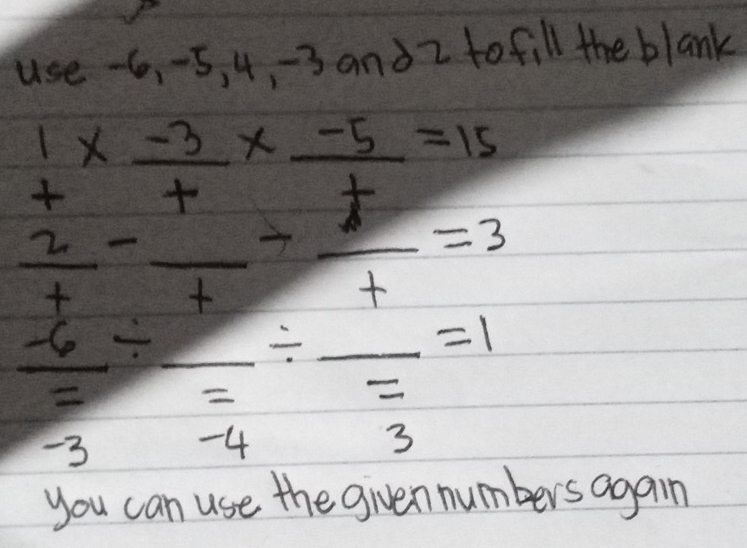 use -6, -5, 4, -3 and 2 to fill the blank
1 × -3 × -5 = 15
+ + +
2 - __ - __ = 3
+ + +
-6 ÷ __ ÷ __ = 1
= = =
-3 -4 3
you can use the given numbers again